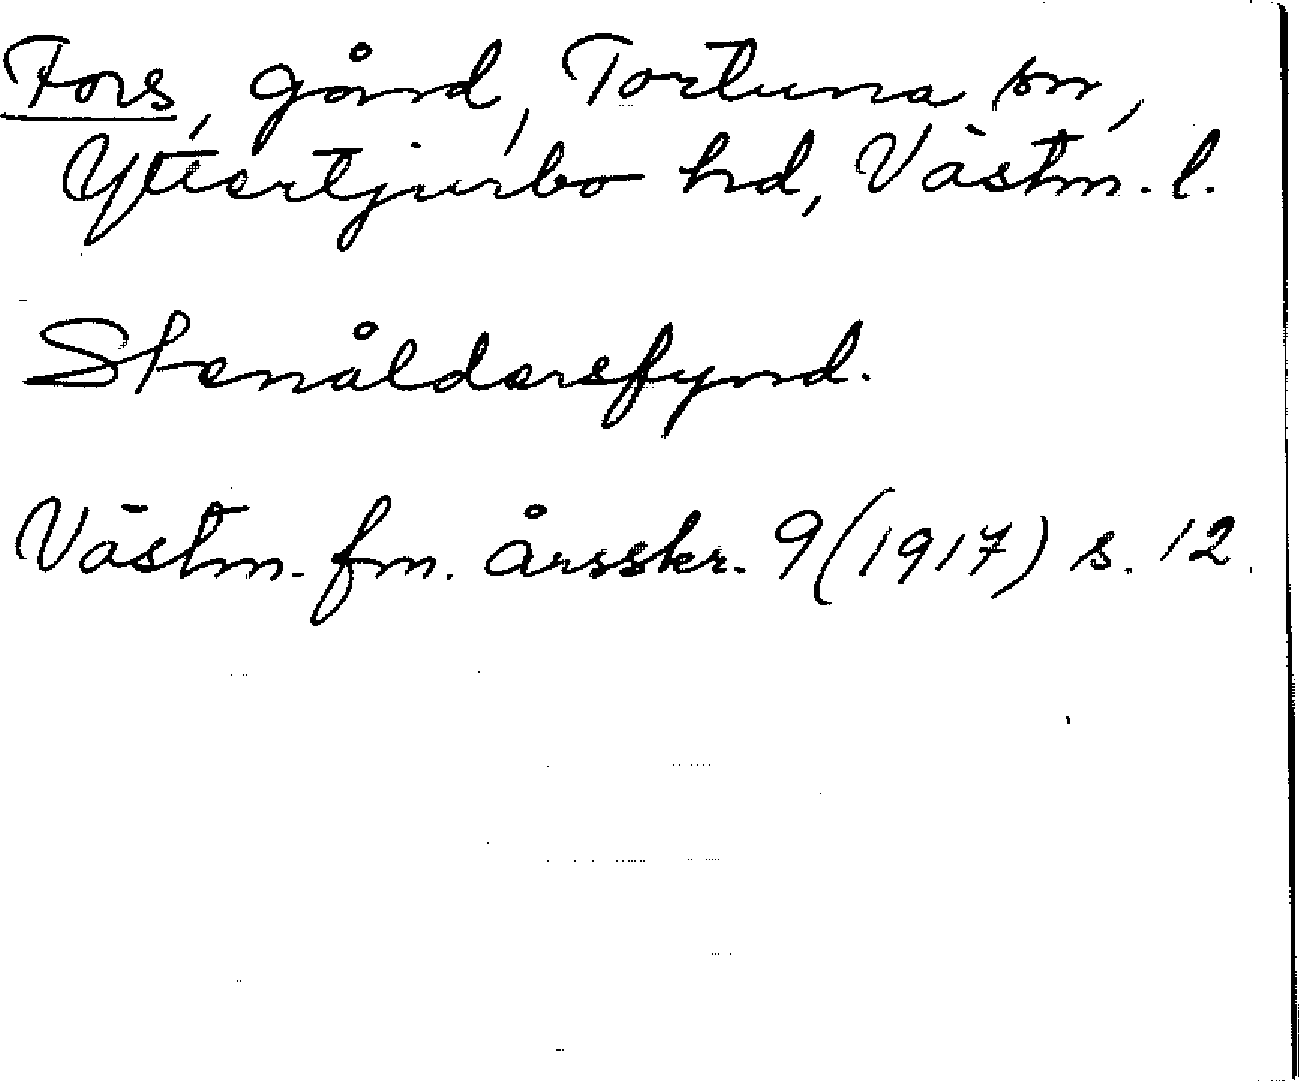 Fors, gård, Tortuna sn,
Yttertjurbo hd, Västm. l.
Stenåldersfynd.
Västm. fm. årsskr. 9 (1917) s. 12.